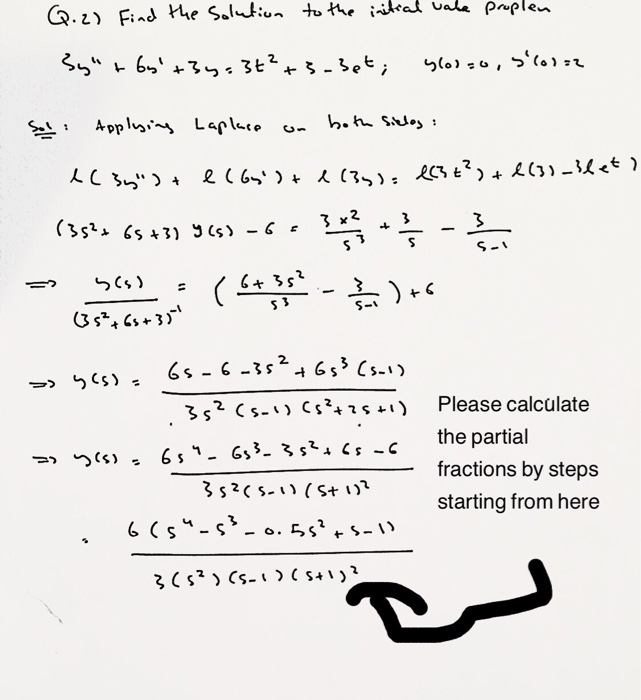 Q.2) Find the Solution to the initial vake proplem
3y" + 6y' + 3y = 3t² + 3 - 3et ; y(0) = 0, y'(0) = 2
Sol : Applying Laplace on both Sides :
l(3y") + l(6y') + l(3y) = l(3t²) + l(3) - 3let)
(3s² + 6s + 3) y(s) - 6 = 3×2/s³ + 3/s - 3/s-1
=> y(s)/(3s²+6s+3)⁻¹ = (6+3s²/s³ - 3/s-1) + 6
=> y(s) = 6s - 6 - 3s² + 6s³ (s-1) / 3s² (s-1) (s²+2s+1)
=> y(s) = 6s⁴ - 6s³ - 3s² + 6s - 6 / 3s²(s-1)(s+1)²
= 6(s⁴ - s³ - 0.5s² + s - 1) / 3(s²)(s-1)(s+1)²
Please calculate
the partial
fractions by steps
starting from here